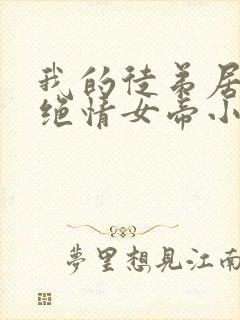 我的徒弟居
绝情女帝小
夢里想見江南